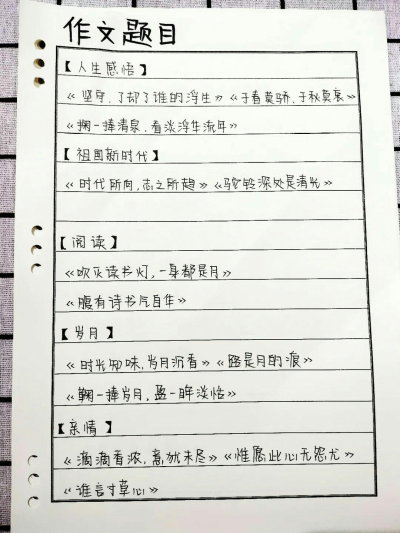 作文题目
【人生感悟】
《坚守,了却了谁的浮生》《于春莫骄,于秋莫哀》
《掬一捧清泉,看淡浮生流年》
【祖国新时代】
《时代所向,志之所趋》《驼铃深处是清光》
【阅读】
《吹灭读书灯,一身都是月》
《腹有诗书气自华》
【岁月】
《时光知味,岁月沉香》《路是月的痕》
《鞠一捧岁月,盈一眸淡恬》
【亲情】
《滴滴香浓,意犹未尽》《惟愿此心无怨尤》
《谁言寸草心》